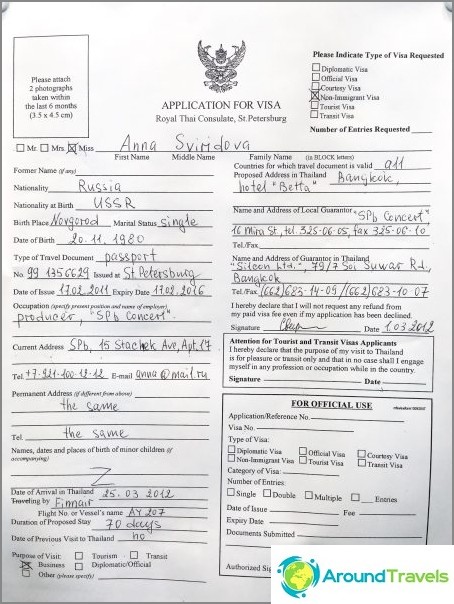 Please attach
2 photographs
taken within
the last 6 months
(3.5 x 4.5 cm)
APPLICATION FOR VISA
Royal Thai Consulate, St.Petersburg
Please Indicate Type of Visa Requested
Diplomatic Visa
Official Visa
Courtesy Visa
Non-Immigrant Visa
Tourist Visa
Transit Visa
Number of Entries Requested
Mr. Mrs. Miss Anna Sviridova
First Name Middle Name Family Name (in BLOCK letters)
Former Name (if any)
Nationality Russia
Nationality at Birth USSR
Birth Place Novgorod Marital Status single
Date of Birth 20.11.1980
Type of Travel Document passport
No. 99 1356629 Issued at St.Petersburg
Date of Issue 17.02.2011 Expiry Date 17.02.2016
Occupation (specify present position and name of employer)
producer, "SPb Concert"
Current Address SPb, 15 Stachek Ave, Apt.17
Tel. +7-921-100-12-12 E-mail anna@mail.ru
Permanent Address (if different from above)
the same
Tel. the same
Names, dates and places of birth of minor children (if
accompanying)
Z
Date of Arrival in Thailand 25.03.2012
Traveling by Finnair
Flight No. or Vessel's name AY207
Duration of Proposed Stay 70 days
Date of Previous Visit to Thailand no
Purpose of Visit: Tourism Transit
Business Diplomatic/Official
Other (please specify)
Countries for which travel document is valid all
Proposed Address in Thailand Bangkok,
hotel "Betta"
Name and Address of Local Guarantor "SPb Concert"
16 Mira St., tel. 325-06-05, fax 325-06-10
Tel./Fax
Name and Address of Guarantor in Thailand
"Silcon Ltd.", 79/7 Soi Suwar Rd.,
Bangkok
Tel./Fax (662)683-14-09/(662)683-10 07
I hereby declare that I will not request any refund from
my paid visa fee even if my application has been declined.
Signature Date 1.03.2012
Attention for Tourist and Transit Visas Applicants
I hereby declare that the purpose of my visit to Thailand
is for pleasure or transit only and that in no case shall I engage
myself in any profession or occupation while in the country.
Signature Date
FOR OFFICIAL USE
Application/Reference No.
Visa No.
Type of Visa:
Diplomatic Visa Official Visa Courtesy Visa
Non-Immigrant Visa Tourist Visa Transit Visa
Category of Visa:
Number of Entries:
Single Double Multiple Entries
Date of Issue Fee
Expiry Date
Documents Submitted
Authorized Sign
AroundTravels